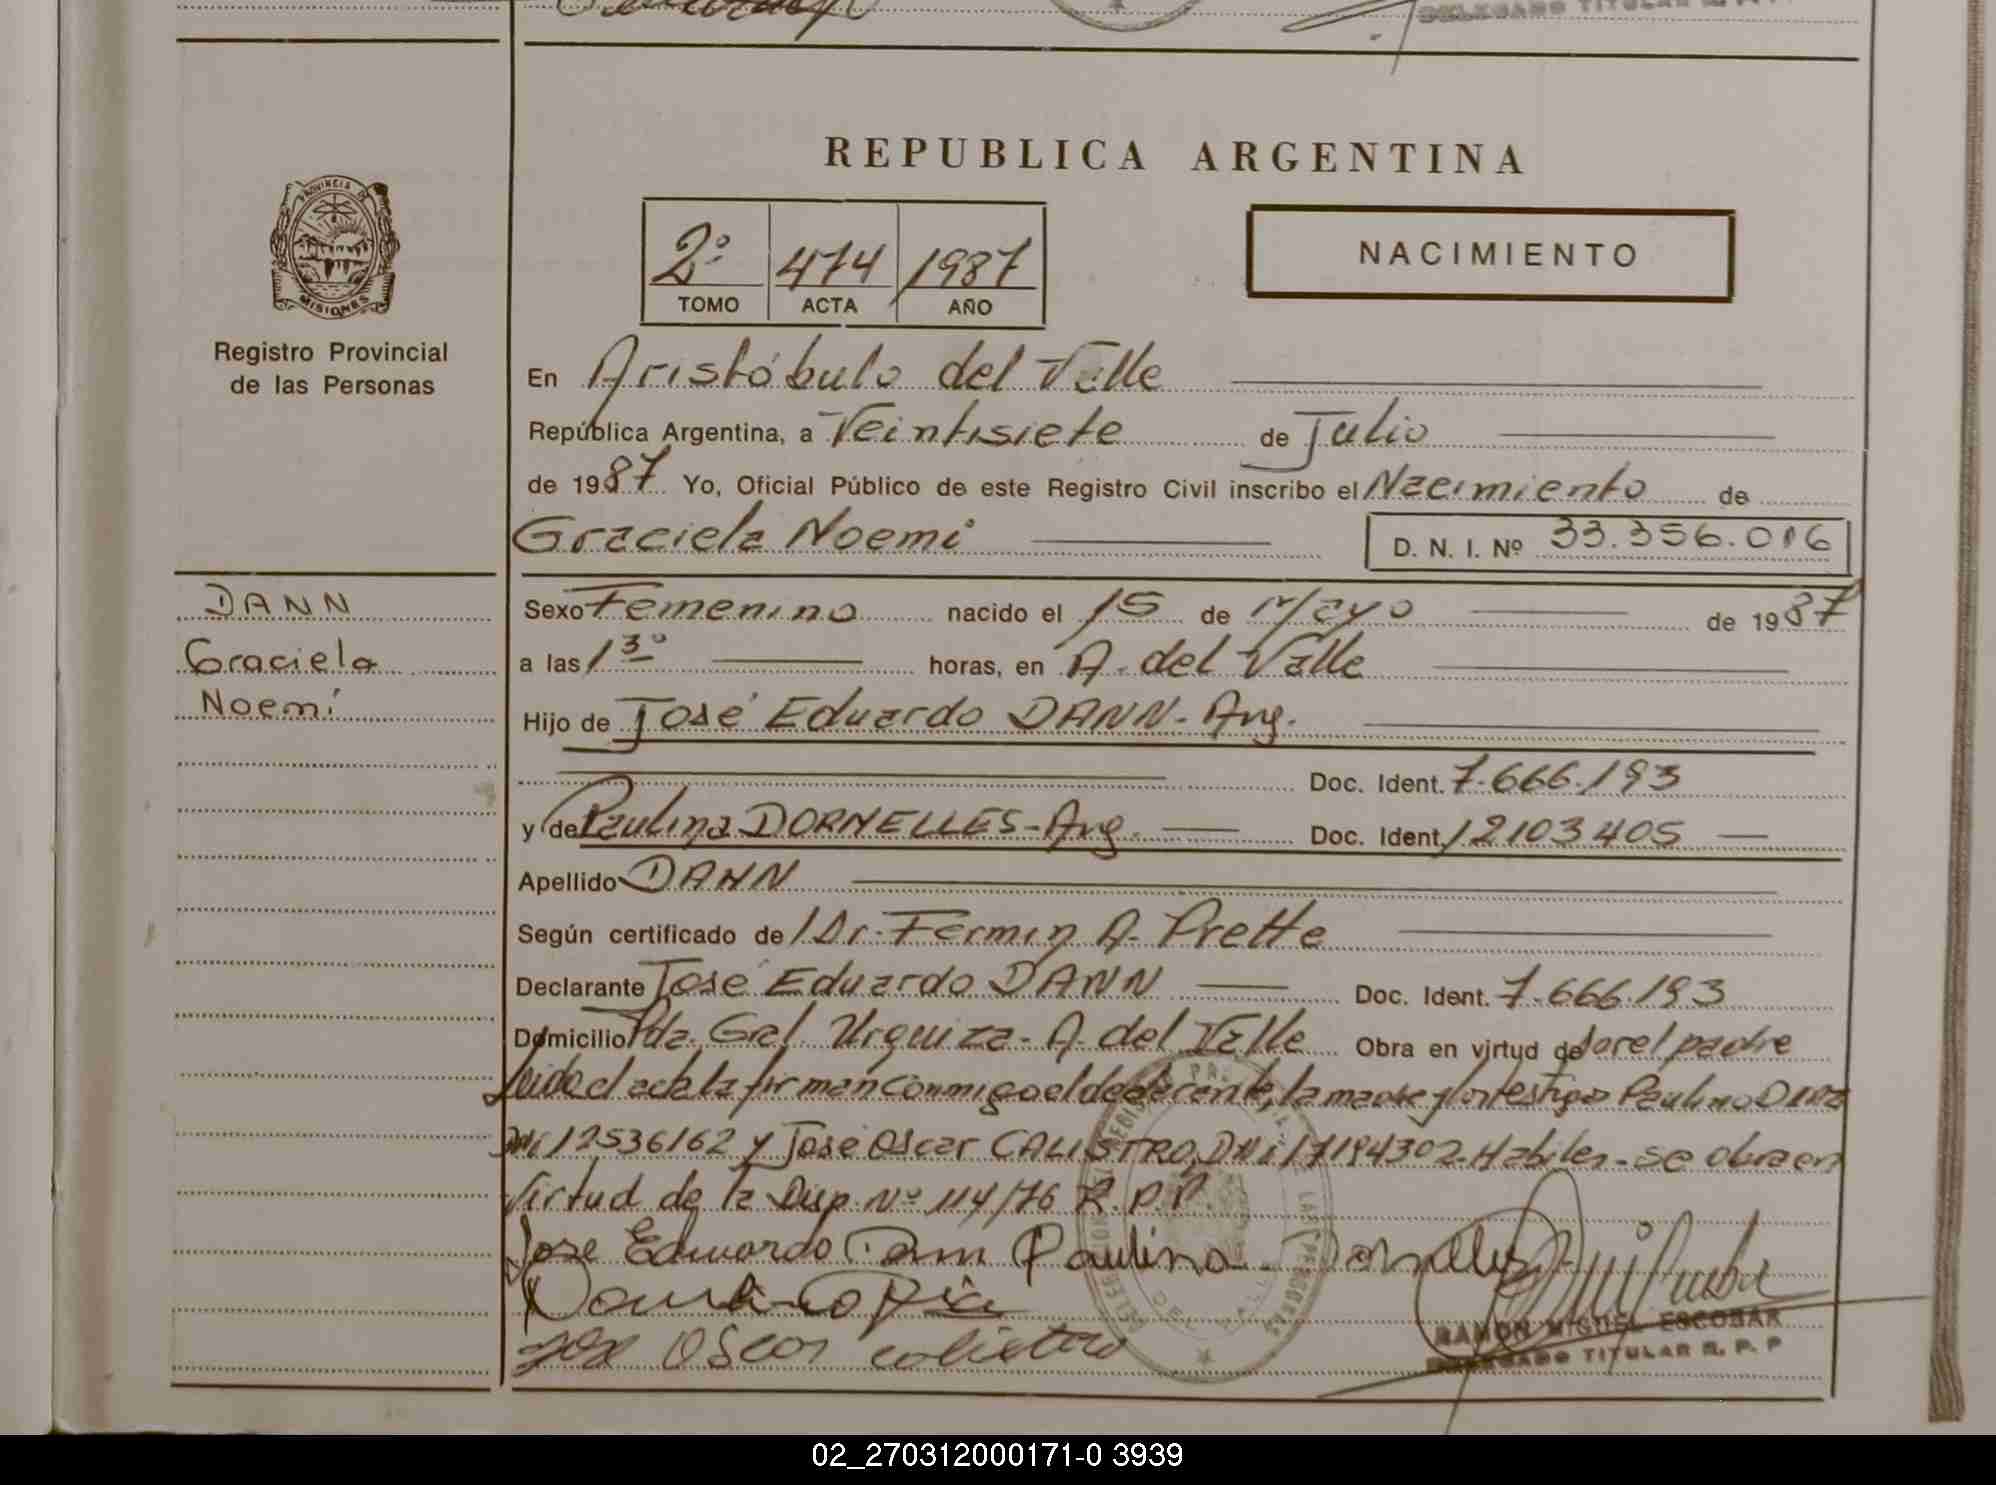 DELEGADO TITULAR R. P. P.
REPUBLICA ARGENTINA
PROVINCIA DE
MISIONES
Registro Provincial
de las Personas
2º 474 1987
TOMO ACTA AÑO
NACIMIENTO
En Aristóbulo del Valle
República Argentina, a Veintisiete de Julio
de 1987 Yo, Oficial Público de este Registro Civil inscribo el Nacimiento de
Graciela Noemi D. N. I. Nº 33.356.016
DANN
Graciela
Noemí
Sexo Femenino nacido el 15 de Mayo de 1987
a las 1 3º horas, en A. del Valle
Hijo de José Eduardo DANN - Arg.
Doc. Ident. 7.666.193
y de Paulina DORNELLES - Arg. Doc. Ident. 12103405
Apellido DANN
Según certificado de Dr. Fermin A. Prette
Declarante José Eduardo DANN Doc. Ident. 7.666.193
Domicilio Pda. Gral. Urquiza - A. del Valle Obra en virtud de ser el padre
leida el acta la firman conmigo el declarante, la madre y los testigos Paulino
DNI 12536162 y José Oscar CALISTRO, DNI 17194302 - Habiles - se obra en
Virtud de la Disp. Nº 114/76 R.P.P.
Jose Eduardo Dann Paulina Dornelles
Oscar
RAMON MIGUEL ESCOBAR
DELEGADO TITULAR R. P. P
02_270312000171-0 3939